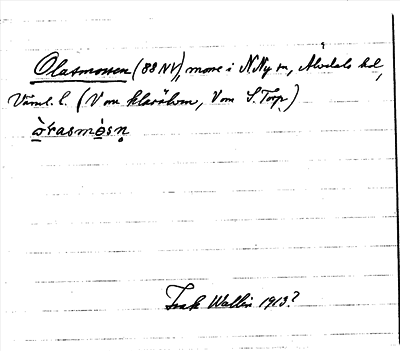 Olasmossen (88 NV), mosse i N. Ny sn, Älvdals hd,
Värml. l. (V om Klarälven, V om S. Torp)
òrasmòsn̥
Frak Wallin 1913?